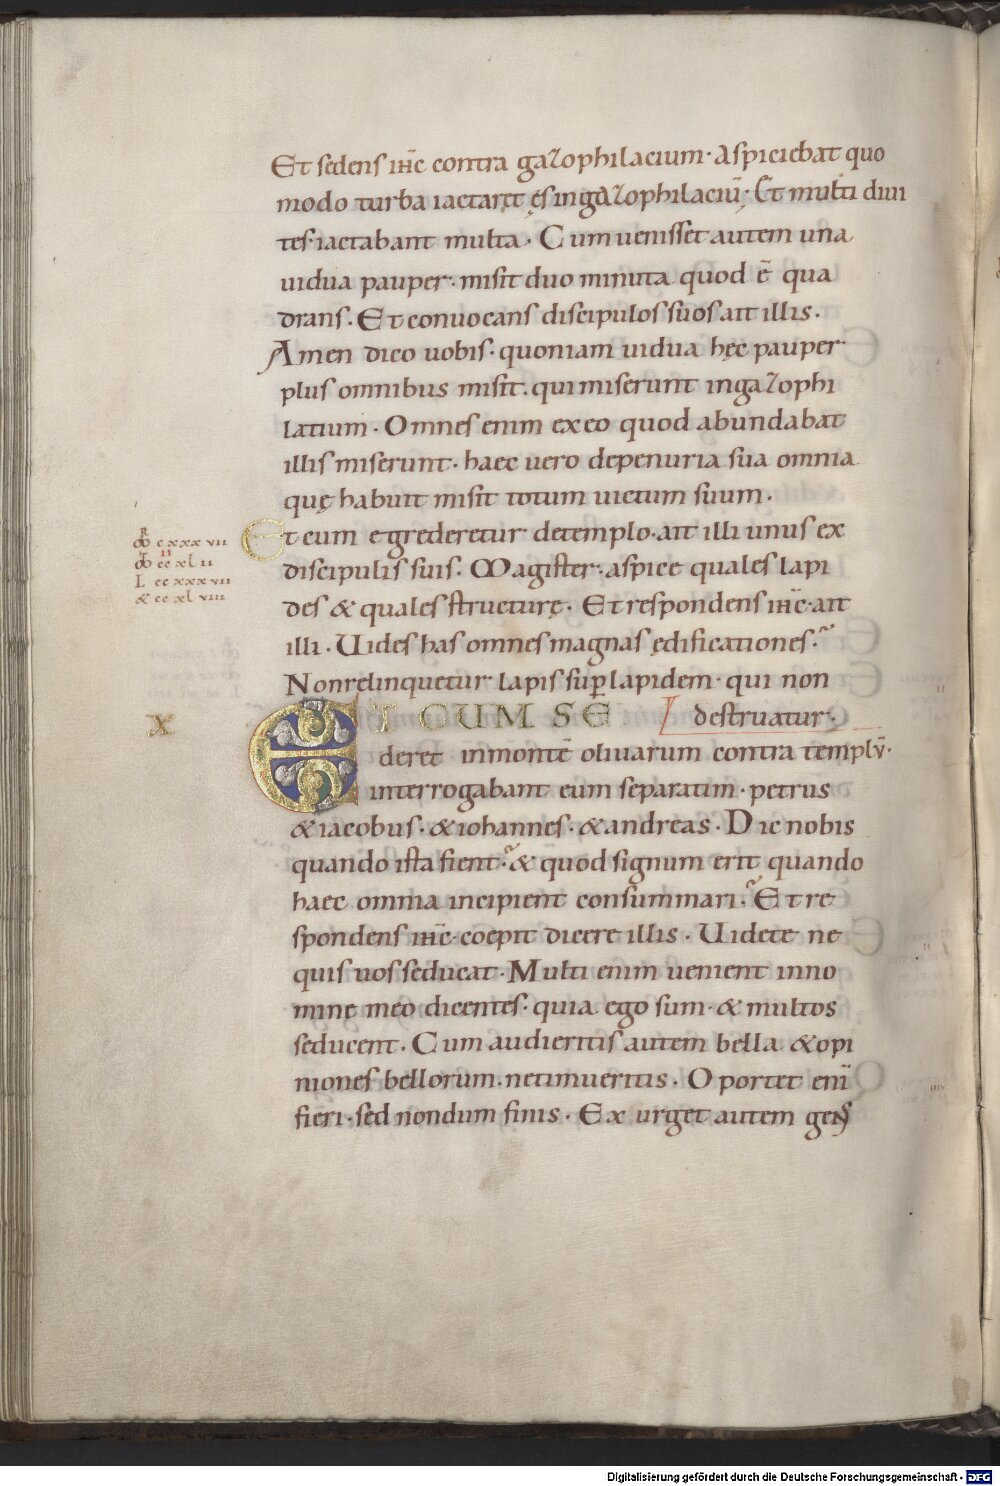 Et sedens ihc contra gazophilacium· Aspiciebat quo
modo turba iactaret ęs in gazophilaciū· Et multi diui
tes· iactabant multa· Cum uenisset autem una
uidua pauper· misit duo minuta quod ē qua
drans· Et conuocans discipulos suos ait illis·
Amen dico uobis· quoniam uidua hęc pauper
plus omnibus misit· qui miserunt in gazophi
latium· Omnes enim ex eo quod abundabat
illis miserunt· haec uero de penuria sua omnia
quę habuit misit totum uictum suum·
Et cum egrederetur de templo· ait illi unus ex
discipulis suis· Magister· aspice quales lapi
des & quales structurę· Et respondens ihc· ait
illi· Uides has omnes magnas ędificationes·
Non relinquetur lapis suꝑ lapidem· qui non
destruatur·
ET CUM SE
deret in montē oliuarum contra templū·
interrogabant eum separatim· petrus
& iacobus· & iohannes· & andreas· Dic nobis
quando ista fient· & quod signum erit quando
haec omnia incipient consummari· Et re
spondens ihc· coepit dicere illis· Uidete ne
quis uos seducat· Multi enim uenient in no
minę meo dicentes· quia ego sum· & multos
seducent· Cum audieritis autem bella & opi
niones bellorum· ne timueritis· Oportet enī
fieri· sed nondum finis· Exurget autem gens
R
cxxxvii
II
cc xl ii
L cc xxx vii
& cc xl viii
X
Digitalisierung gefördert durch die Deutsche Forschungsgemeinschaft - DFG